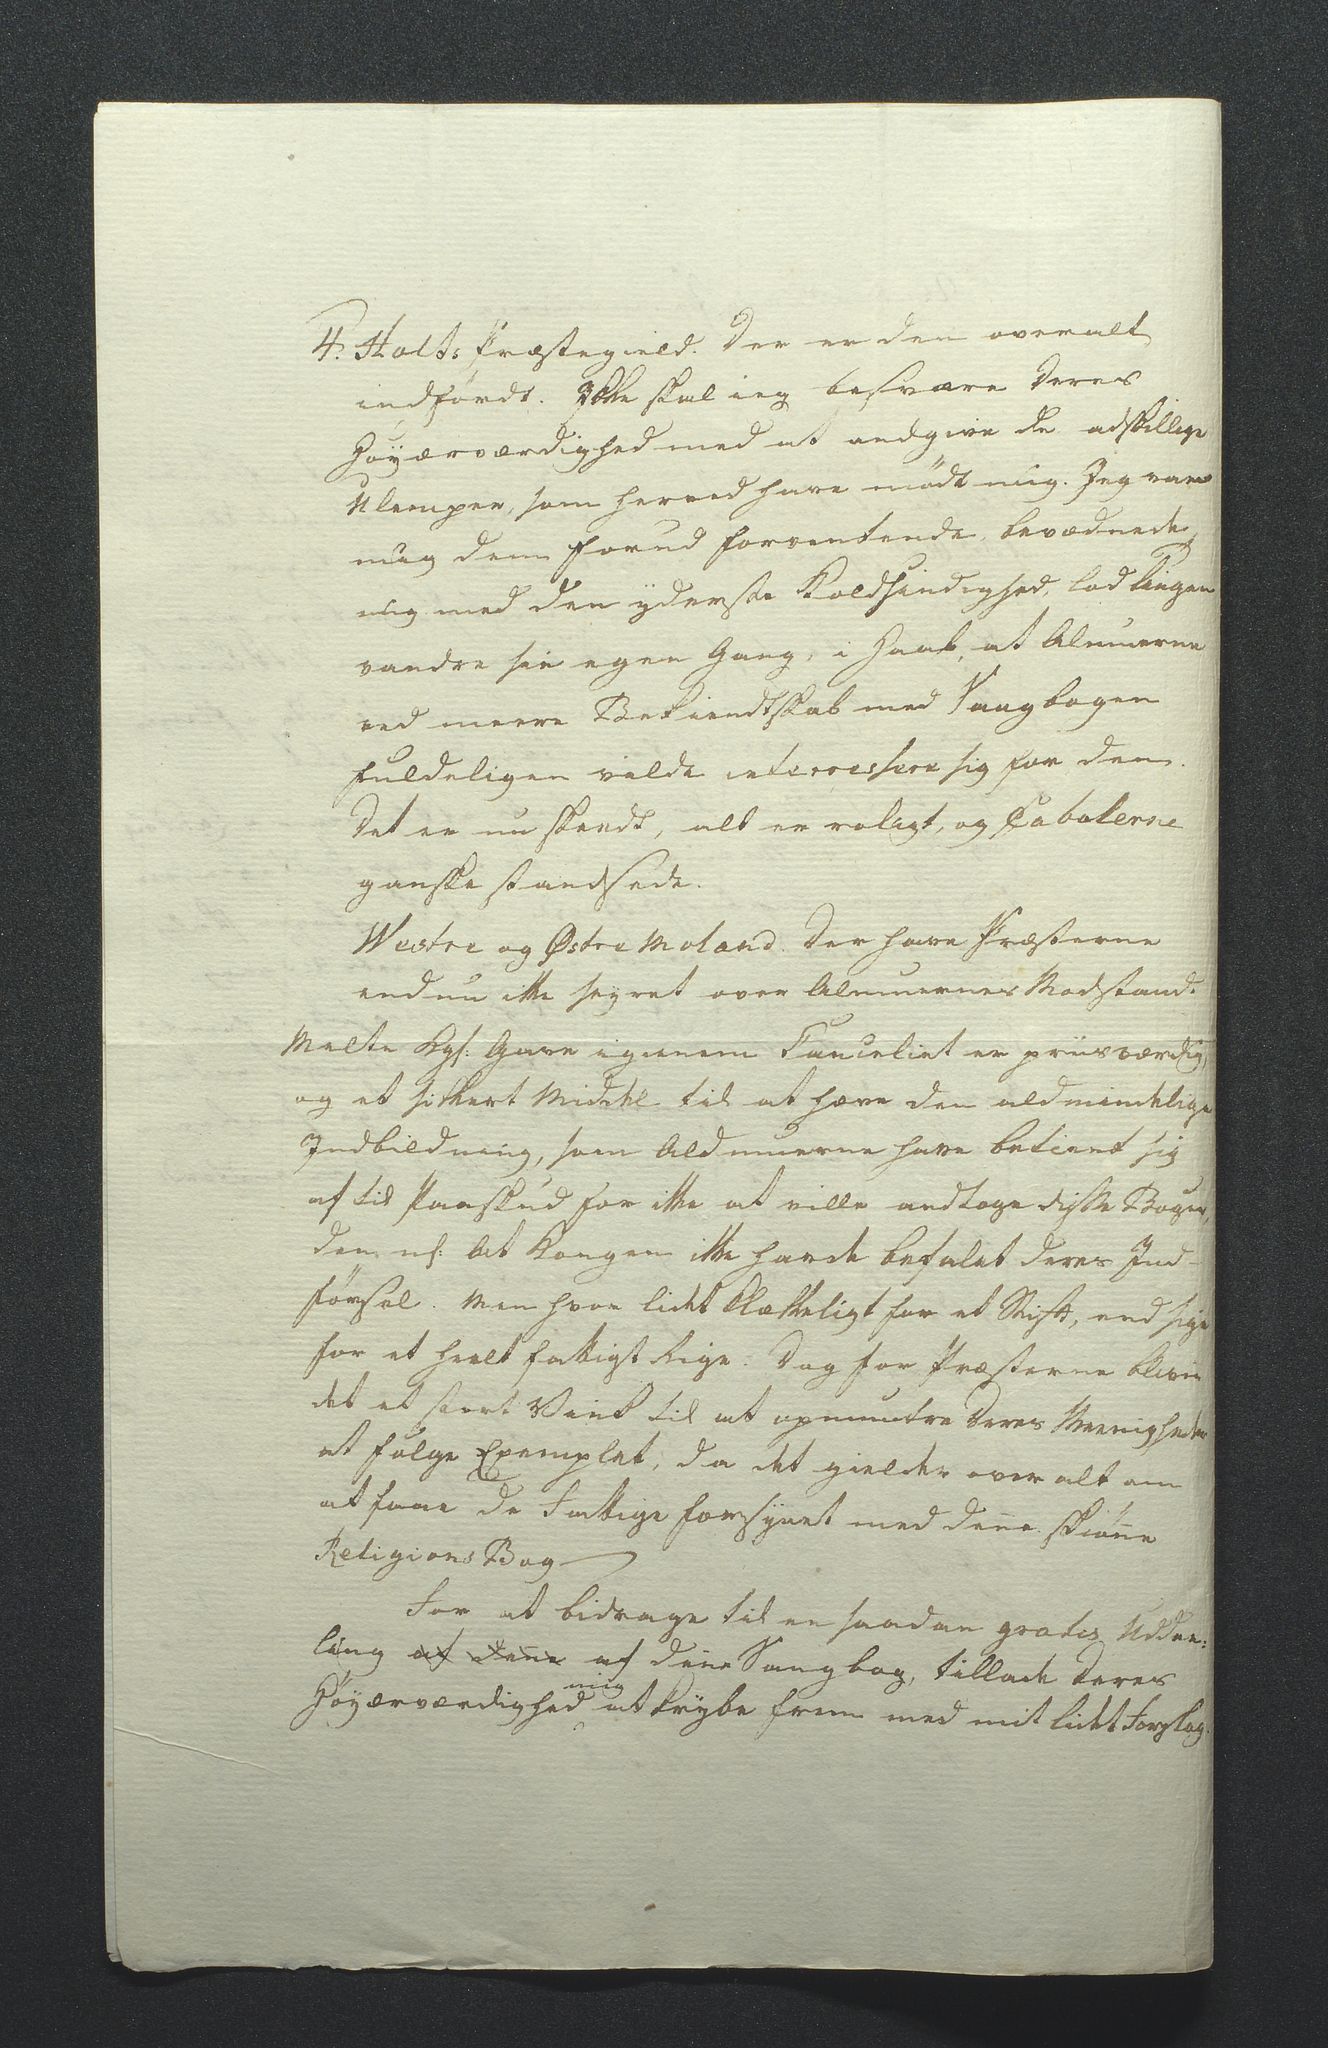 4. Holts Præstegield. Der er den overalt
indførdt. Ikke skal ieg besvære Deres
Høyærværdighed med at andgive de adskillige
Ulemper, som herved have mødt mig. Jeg var
mig dem forud forventende, bevædnede
mig med den yderste Koldsindighed, lod Tingen
vandre sin egen Gang, i Haab, at Almuerne
ved meere Bekiendtskab med Saangbogen
fuldeligen vilde interressere sig for den.
Det er nu skeedt, alt er roligt, og Cabalerne
ganske standsede.
Westre og Østre Moland. Der have Præsterne
endnu ikke seyret over Almuernes Modstand.
Malte Kgs: Gave igienem Canceliet er priisværdig,
og et sikkert Middel til at hæve den aldmindelige
Indbildning, som Aldmuerne have betient sig
af til Paaskud for ikke at ville andtage disse Bøger,
den nl: At Kongen ikke havde befalet deres Ind-
førsel. Men hvor lidet klækkeligt for et Stift, end sige
for et heelt fattigt Rige. Dog for Præsterne bliver
det et stort Vink til at opmuntre Deres Meenigheder
at følge Exemplet, da det gielder over alt om
at faae de Fattige forsynet med deñe skiøñe
Religions Bog
For at bidrage til en saadan gratis Uddee:
ling af deñe af deñe Sangbog, tillade Deres
Høyærværdighed mig at krybe frem med mit lidet Forslag.